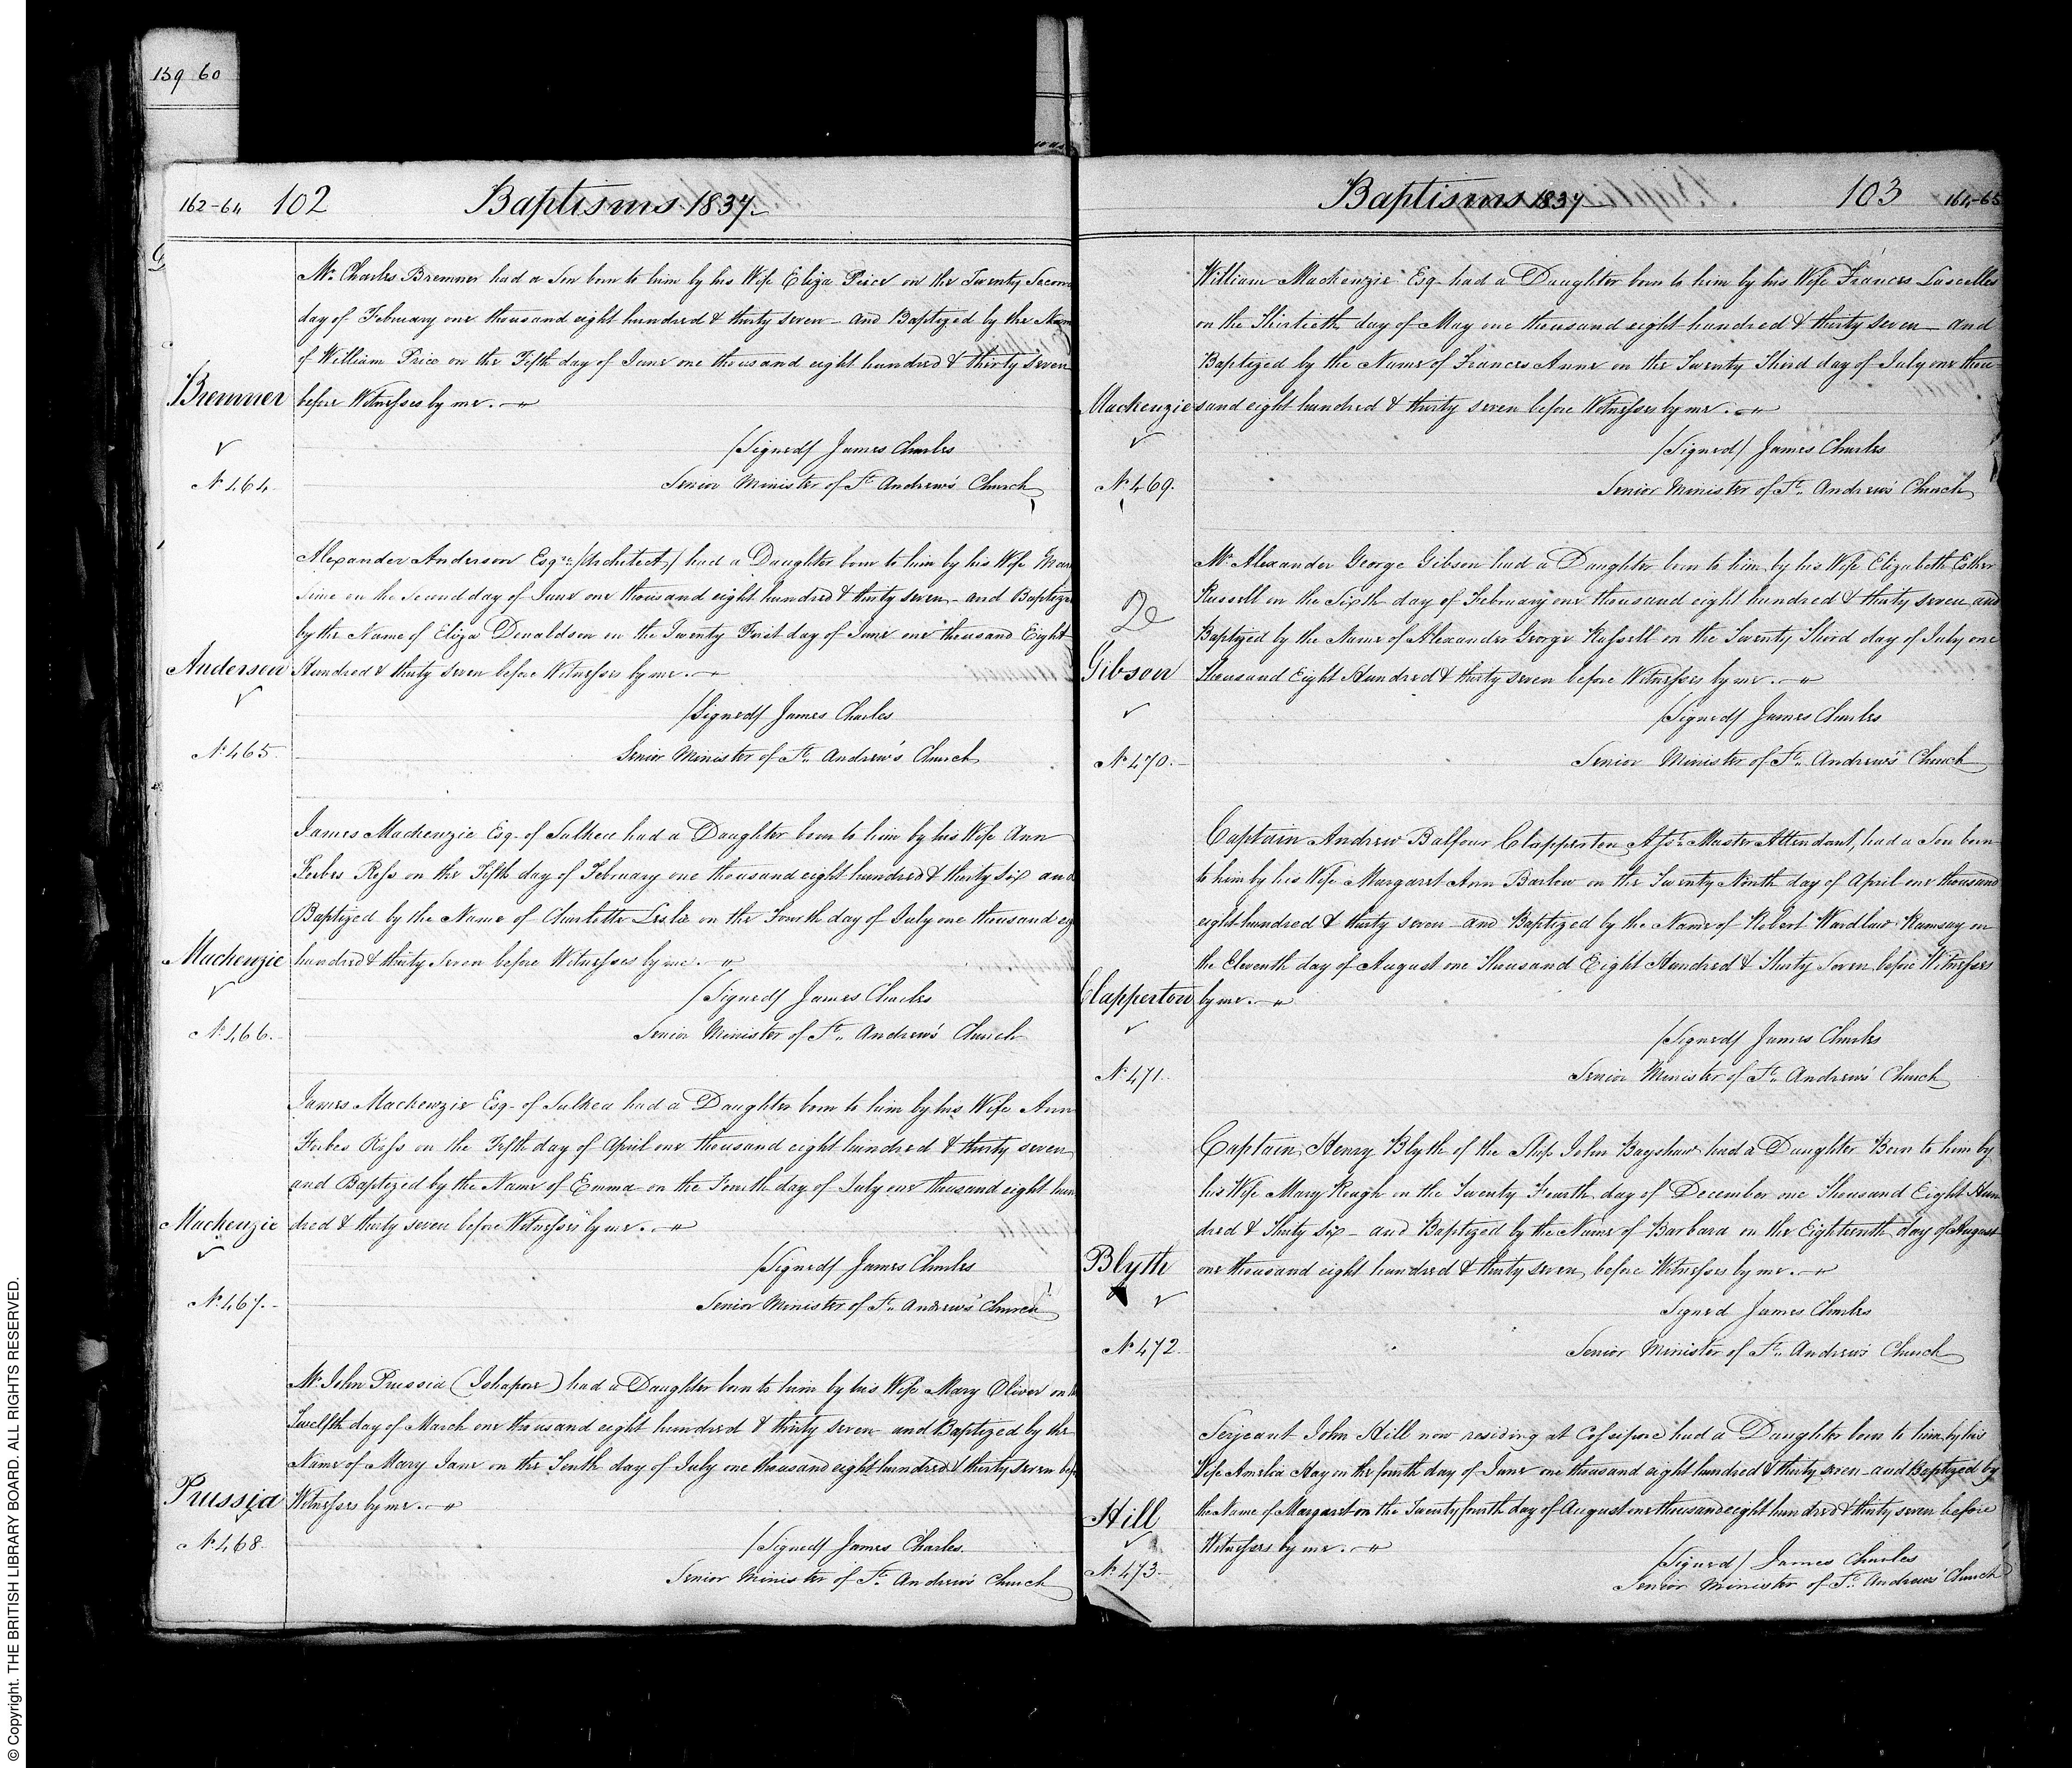 159 60
162-64 102 Baptisms 1837
Mr. Charles Bremner had a Son born to him by his Wife Eliza Price on the Twenty Second
day of February one thousand eight hundred & thirty seven - and Baptized by the Name
of William Price on the Fifth day of June one thousand eight hundred & thirty seven
Bremner before Witnesses by me.
/Signed/ James Charles
No. 464. Senior Minister of St. Andrew's Church
Alexander Anderson Esqre. /Architect/ had a Daughter born to him by his Wife
on the Second day of June one thousand eight hundred & thirty seven - and Baptized
by the Name of Eliza Donaldson on the Twenty First day of June one thousand Eight
Anderson Hundred & thirty seven before Witnesses by me.
/Signed/ James Charles
No. 465 Senior Minister of St. Andrew's Church
James Mackenzie Esq. of Sulkea had a Daughter born to him by his Wife Ann
Forbes Ross on the Fifth day of February one thousand eight hundred & thirty six and
Baptized by the Name of Charlotte Leslie on the Fourth day of July one thousand eig
Mackenzie hundred & thirty Seven before Witnesses by me.
/Signed/ James Charles
No. 466. Senior Minister of St. Andrew's Church
James Mackenzie Esq. of Sulkea had a Daughter born to him by his Wife Ann
Forbes Ross on the Fifth day of April one thousand eight hundred & thirty seven
and Baptized by the Name of Emma on the Fourth day of July one thousand eight hun
Mackenzie dred & thirty seven before Witnesses by me.
/Signed/ James Charles
No. 467. Senior Minister of St. Andrew's Church
Mr. John Prussia (Ishapore) had a Daughter born to him by his Wife Mary Oliver on
Twelfth day of March one thousand eight hundred & thirty seven and Baptized by the
Name of Mary Jane on the Tenth day of July one thousand eight hundred & thirty seven bef
Prussia Witnesses by me.
No. 468. /Signed/ James Charles.
Senior Minister of St. Andrew's Church
Baptisms 1837 103 164-65
William Mackenzie Esq. had a Daughter born to him by his Wife Frances Lascelles
on the Thirtieth day of May one thousand eight hundred & thirty seven - and
Baptized by the Name of Frances Anne on the Twenty Third day of July one thou
Mackenzie sand eight hundred & thirty seven before Witnesses by me.
/Signed/ James Charles
No. 469. Senior Minister of St. Andrew's Church
Mr. Alexander George Gibson had a Daughter born to him by his Wife Elizabeth Esther
Russell on the Sixth day of February one thousand eight hundred & thirty seven and
Baptized by the Name of Alexander George Russell on the Twenty Third day of July one
Gibson Thousand Eight Hundred & thirty seven before Witnesses by me.
/Signed/ James Charles
No. 470. Senior Minister of St. Andrew's Church
Captain Andrew Balfour Clapperton Asst. Master Attendant, had a Son born
to him by his Wife Margaret Ann Barlow on the Twenty Ninth day of April one thousand
eight hundred & thirty seven - and Baptized by the Name of Robert Wardlaw Ramsay on
the Eleventh day of August one Thousand Eight Hundred & Thirty Seven before Witnesses
Clapperton by me.
/Signed/ James Charles
No. 471. Senior Minister of St. Andrew's Church
Captain Henry Blyth of the Ship John Bagshaw had a Daughter Born to him by
his Wife Mary Keugh on the Twenty Fourth day of December one Thousand Eight Hun
dred & Thirty six - and Baptized by the Name of Barbara on the Eighteenth day of August
Blyth one thousand eight hundred & thirty seven before Witnesses by me.
Signed James Charles
No. 472. Senior Minister of St. Andrew's Church
Serjeant John Hill now residing at Cossipore had a Daughter born to him by his
Wife Amelia Hay on the fourth day of June one thousand eight hundred & thirty seven - and Baptized by
the Name of Margaret on the Twenty fourth day of August one thousand eight hundred & thirty seven before
Hill Witnesses by me.
/Signed/ James Charles
No. 473. Senior Minister of St. Andrew's Church
© Copyright. THE BRITISH LIBRARY BOARD. ALL RIGHTS RESERVED.